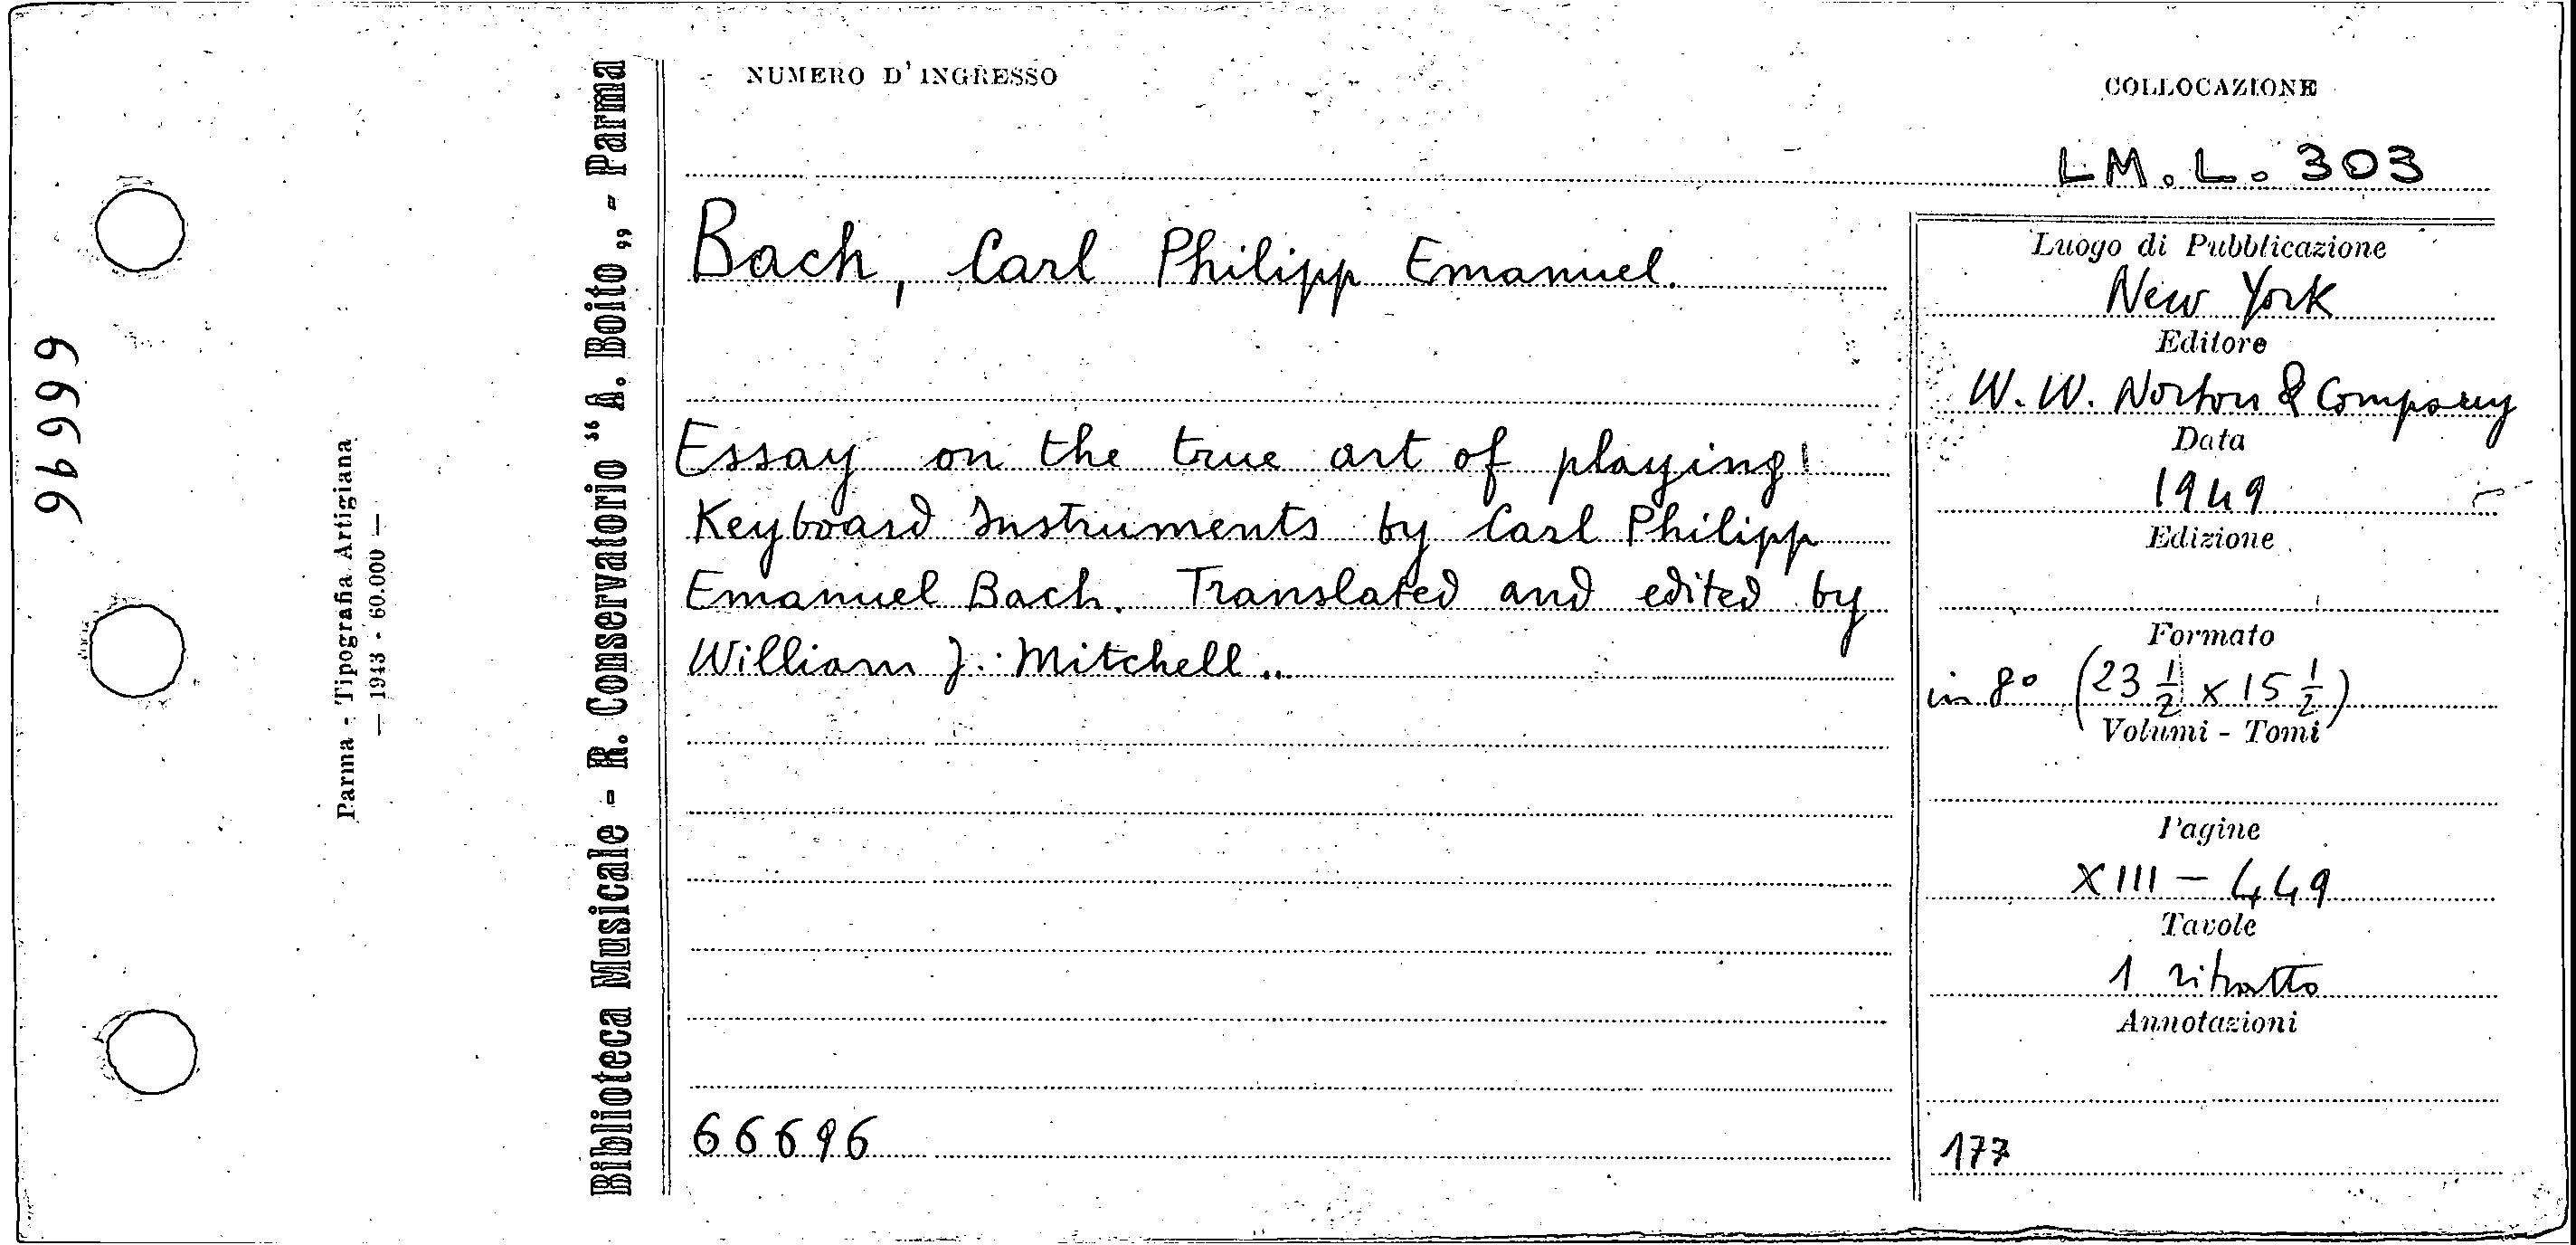 66696
Parma - Tipografia Artigiana
— 1943 - 60.000 —
Biblioteca Musicale - R. Conservatorio "A. Boito„ - Parma
NUMERO D'INGRESSO
COLLOCAZIONE
LM. L. 303
Bach, Carl Philipp Emanuel.
Essay on the true art of playing
Keyboard Instruments by Carl Philipp
Emanuel Bach. Translated and edited by
William J. Mitchell..
66696
Luogo di Pubblicazione
New York
Editore
W. W. Norton & Company
Data
1949
Edizione
Formato
in 8° (23 1/2 x 15 1/2)
Volumi - Tomi
Pagine
XIII - 449
Tavole
1 ritratto
Annotazioni
177